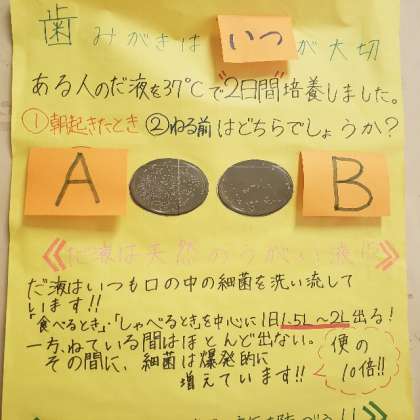 歯みがきは いつ が大切
ある人のだ液を37℃で"2日間"培養しました。
①朝起きたとき ②ねる前 はどちらでしょうか？
A B
だ液は天然のうがい液
だ液はいつも口の中の細菌を洗い流して
います!!
「食べるとき」・「しゃべるとき」を中心に1日1.5L〜2L出る！
一方、ねている間はほとんど出ない。
その間に、細菌は爆発的に
増えています!!
便の
10倍!!